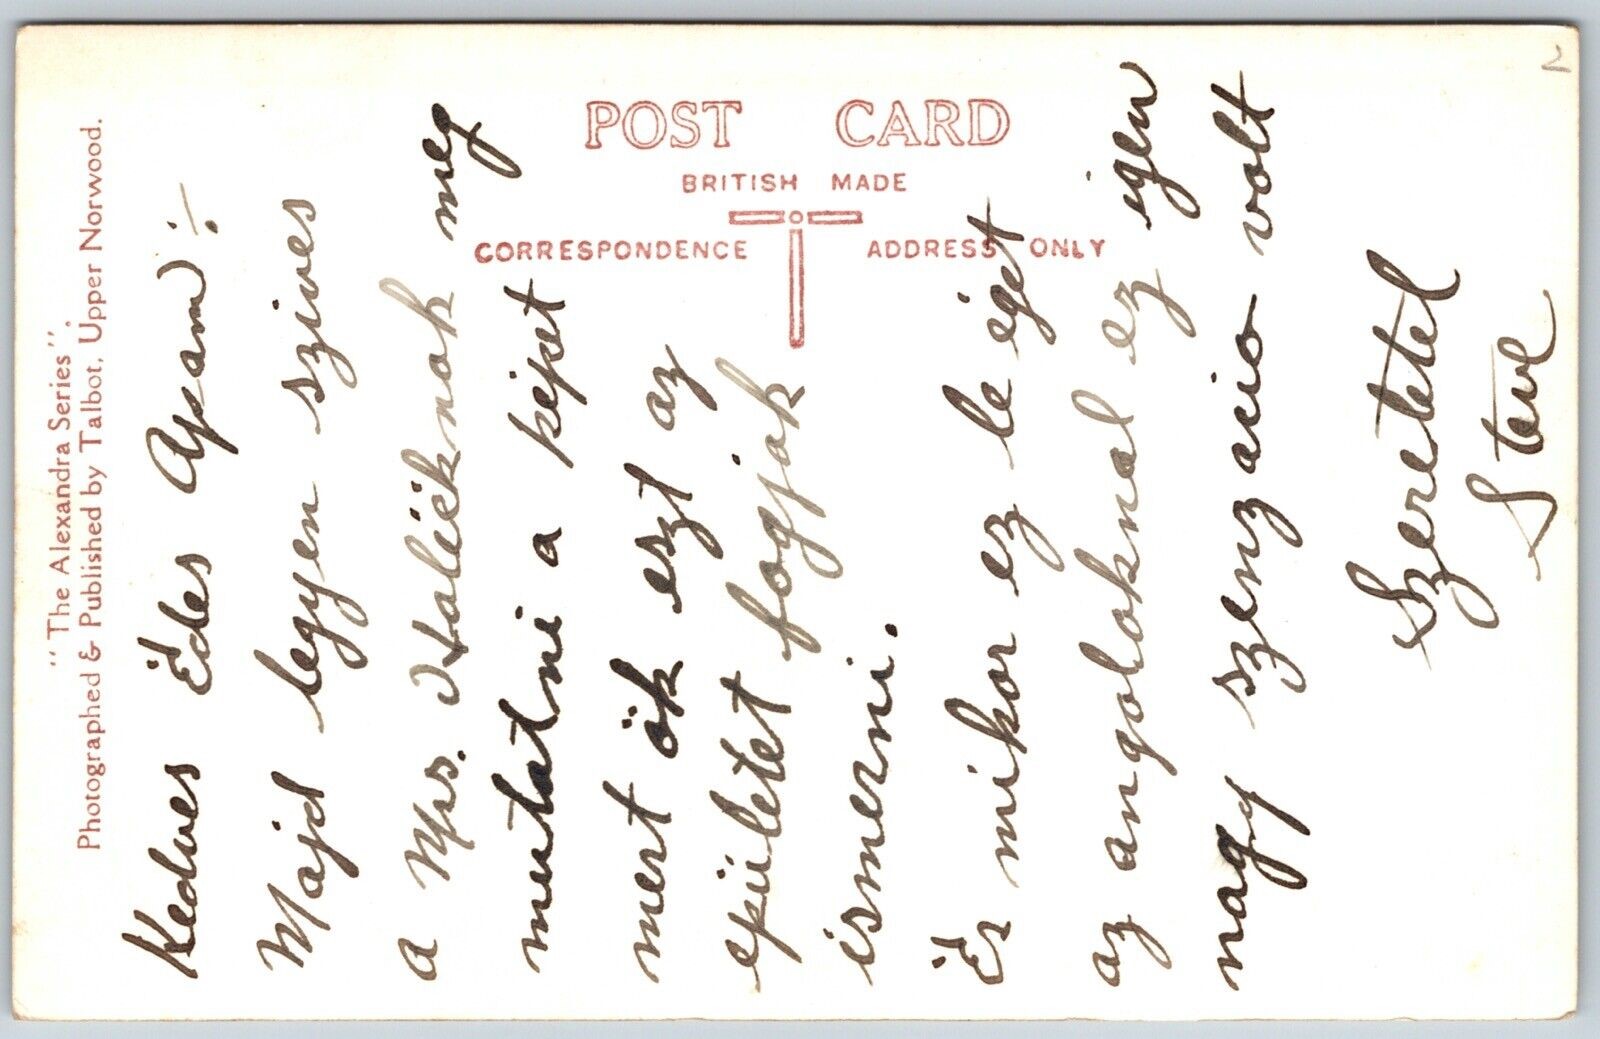 "The Alexandra Series".
Photographed & Published by Talbot, Upper Norwood.
POST CARD
BRITISH MADE
CORRESPONDENCE ADDRESS ONLY
2
Kedves Édes Apam ÷
Majd legyen szives
a Mrs. Haliĕknak meg
mutatni aképet
mert ök eszt az
epületet fogjak
ismerni.
És mikor ez le éget
az angoloknal ez igen
nagy szenzacio volt
Szeretetel
Steve